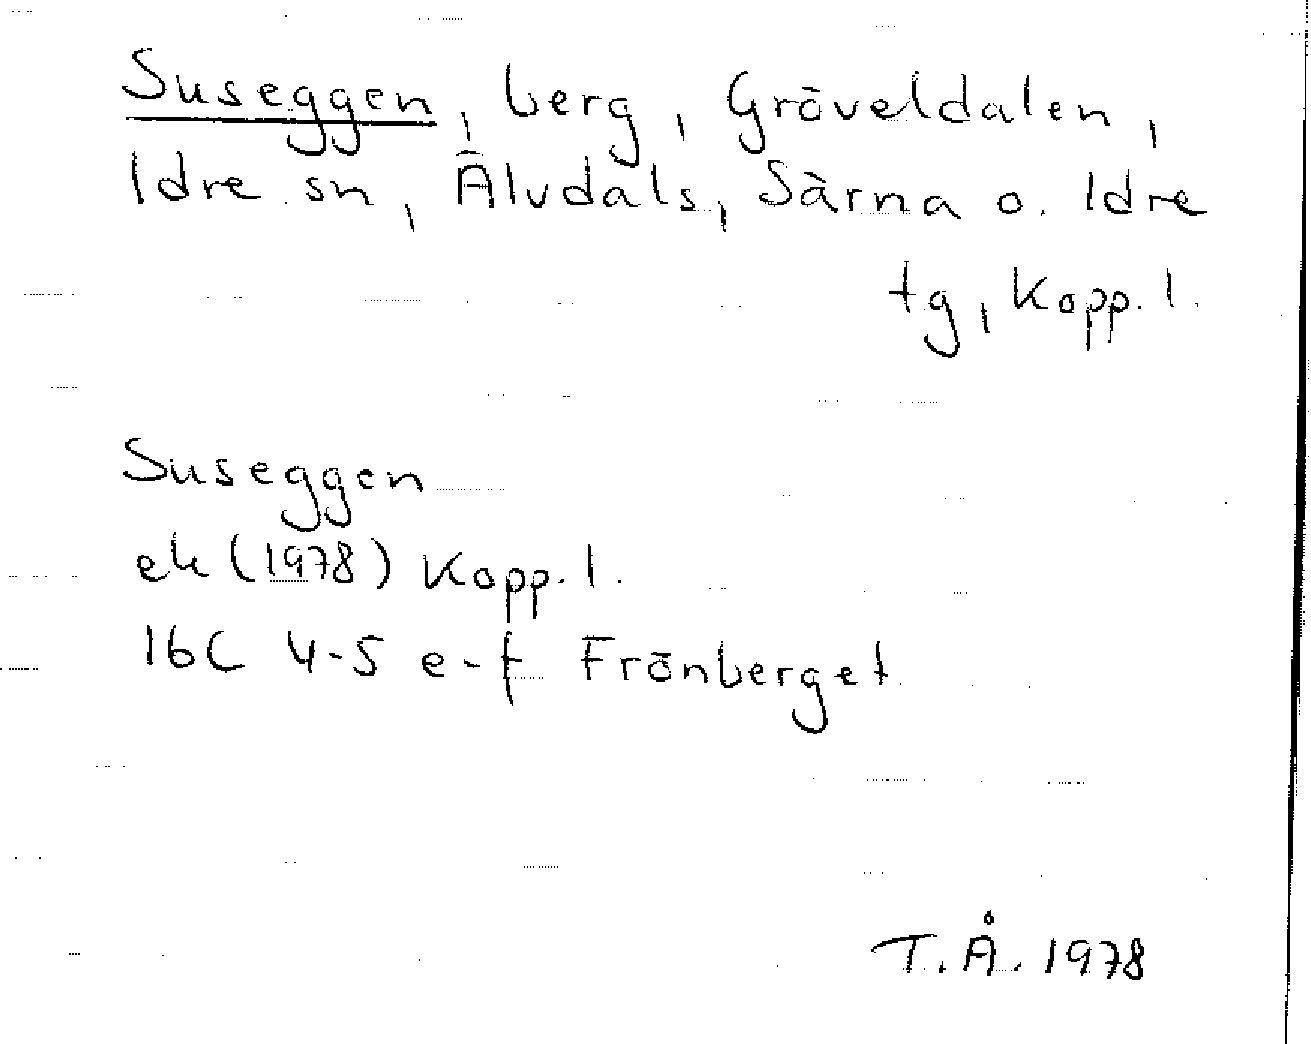 Suseggen, berg, Gröveldalen,
Idre sn, Älvdals, Särna o. Idre
tg, Kopp. l.
Suseggen
ek (1978) Kopp. l.
16C 4-5 e-f Frönberget
T. Å. 1978